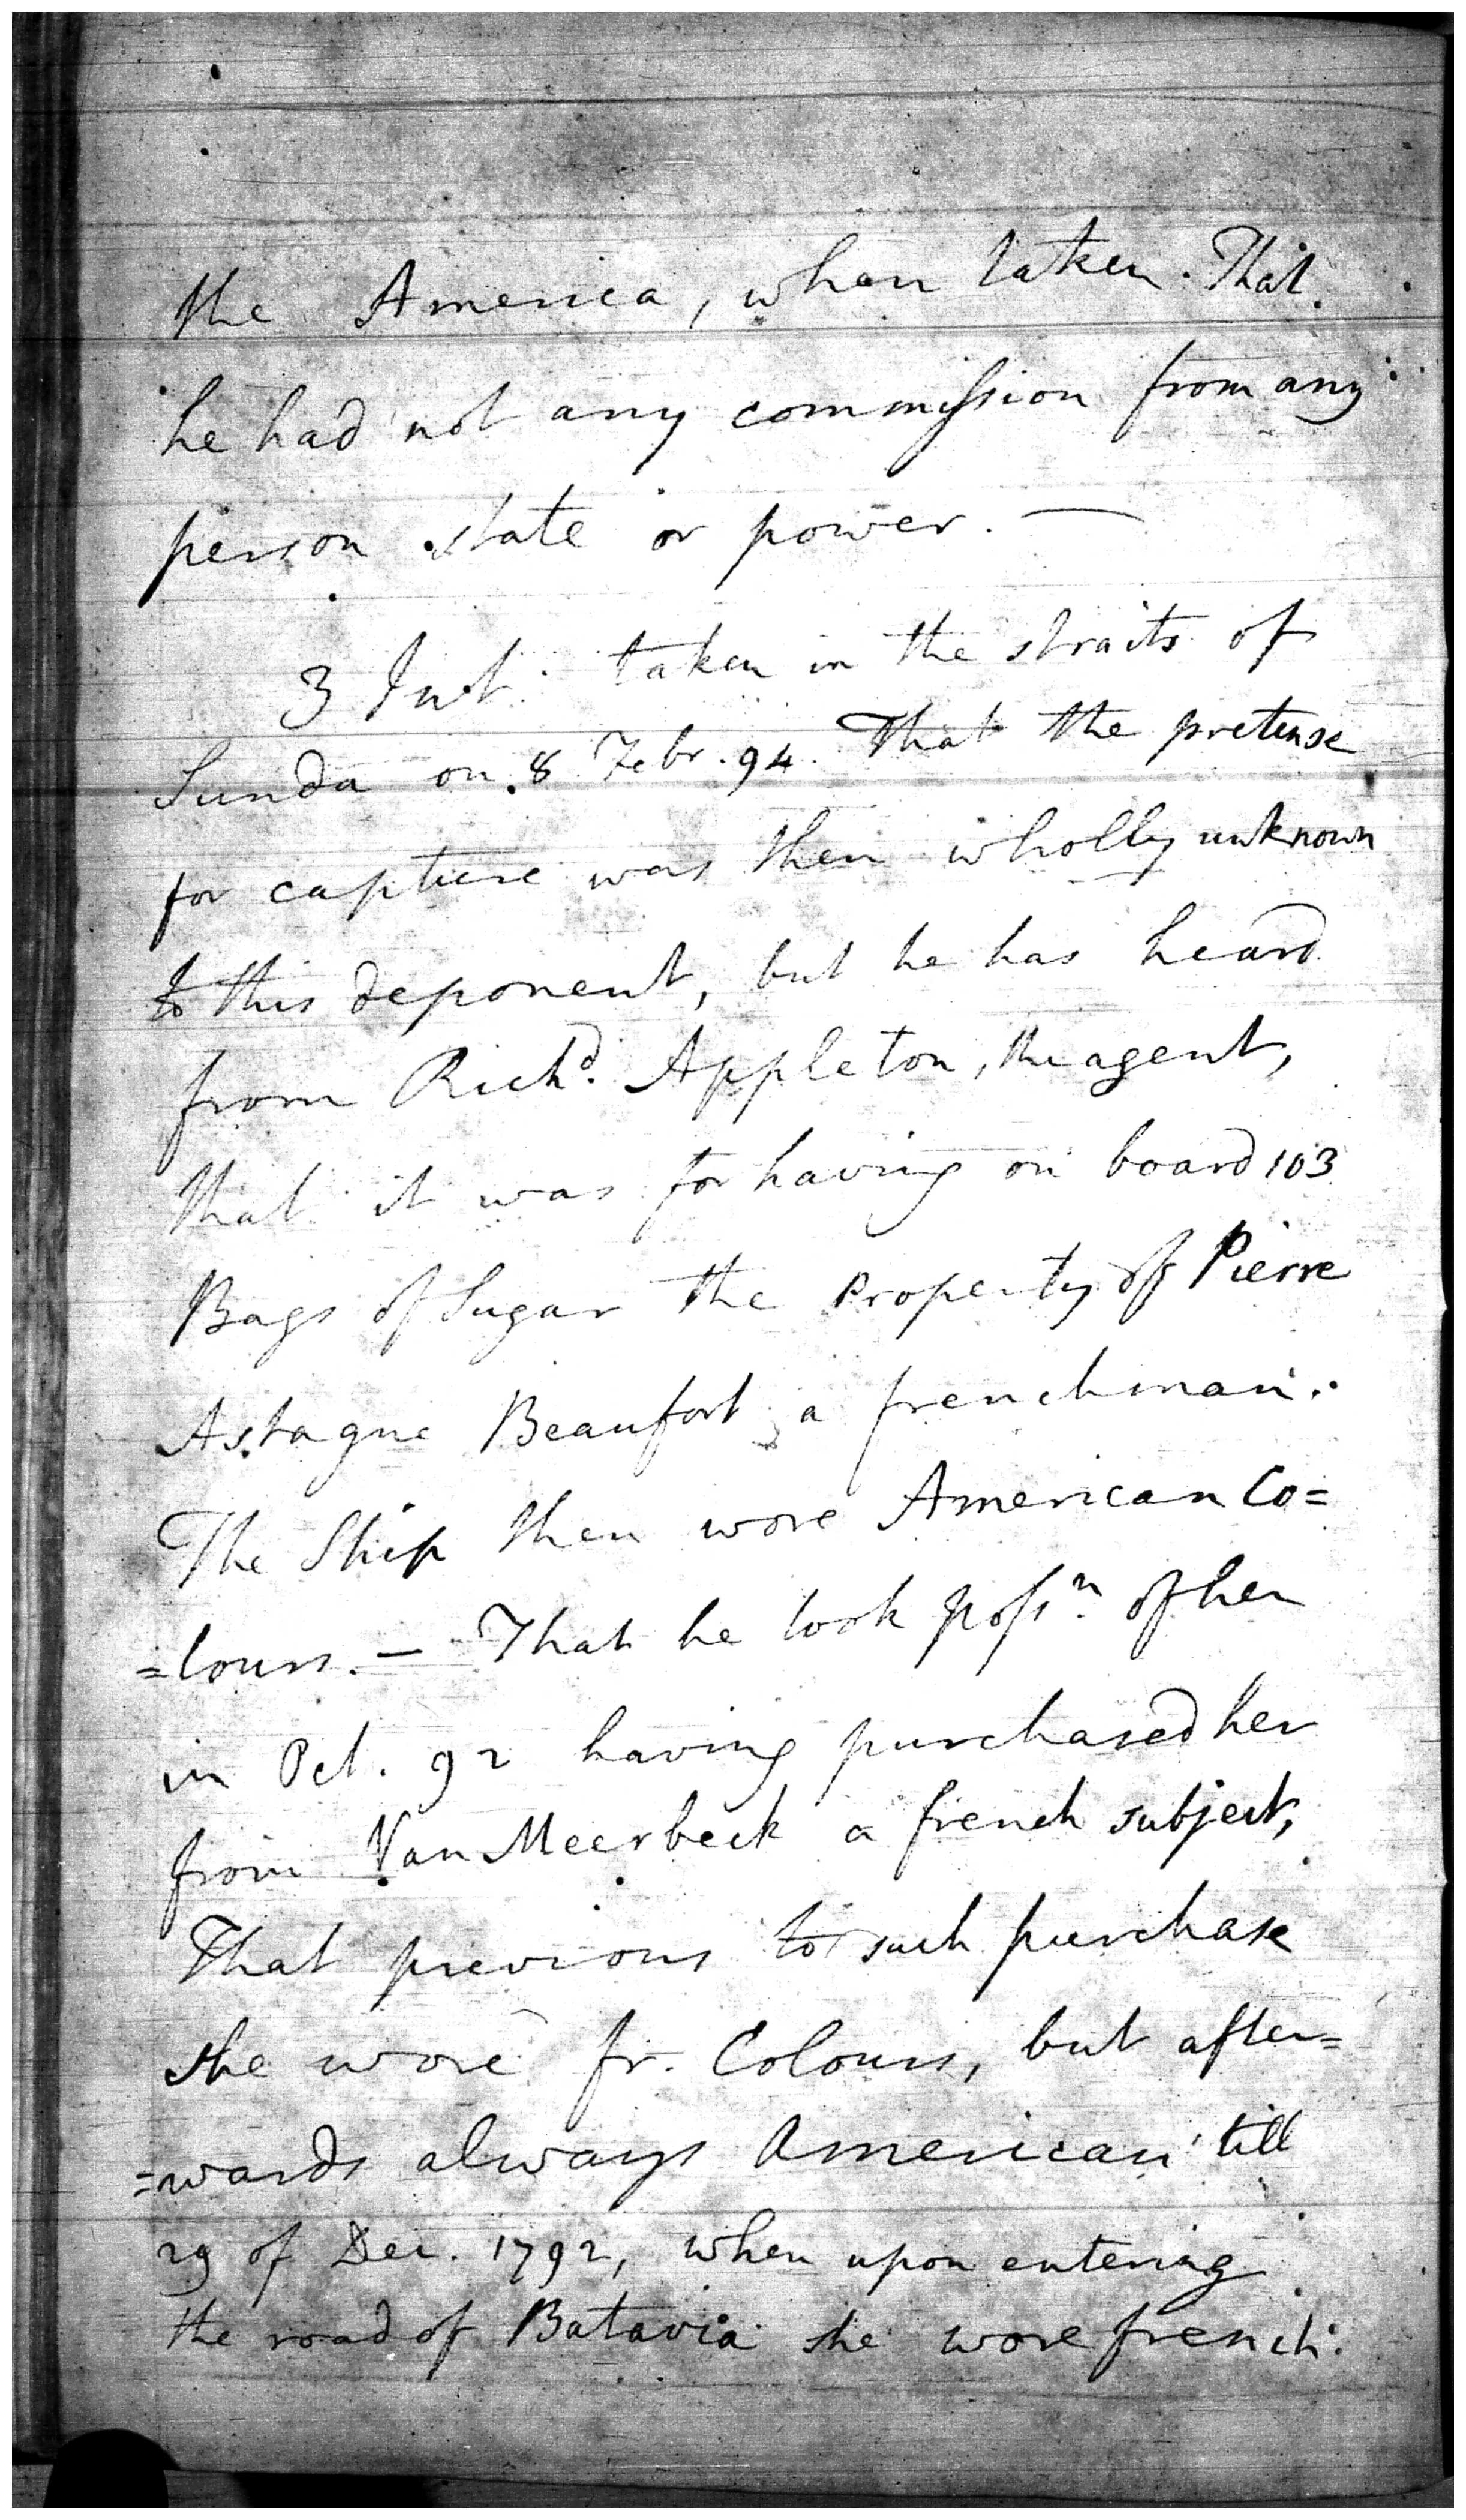 the America, when taken. That
he had not any commission from any
person state or power. —
3 Int. taken in the straits of
Sunda on 8 Febr. 94. That the pretense
for capture was then wholly unknown
to this deponent, but he has heard
from Richd. Appleton, the agent,
that it was for having on board 103
Bags of Sugar the Property of Pierre
Astagne Beaufort, a frenchman.
The Ship then wore American Co=
=lours. — That he took possn. of her
in Oct. 92 having purchased her
from Van Meerbeck a french subject,
That previous to such purchase
she wore fr. Colours, but after=
=wards always American till
29 of Dec. 1792, when upon entering
the road of Batavia she wore french.